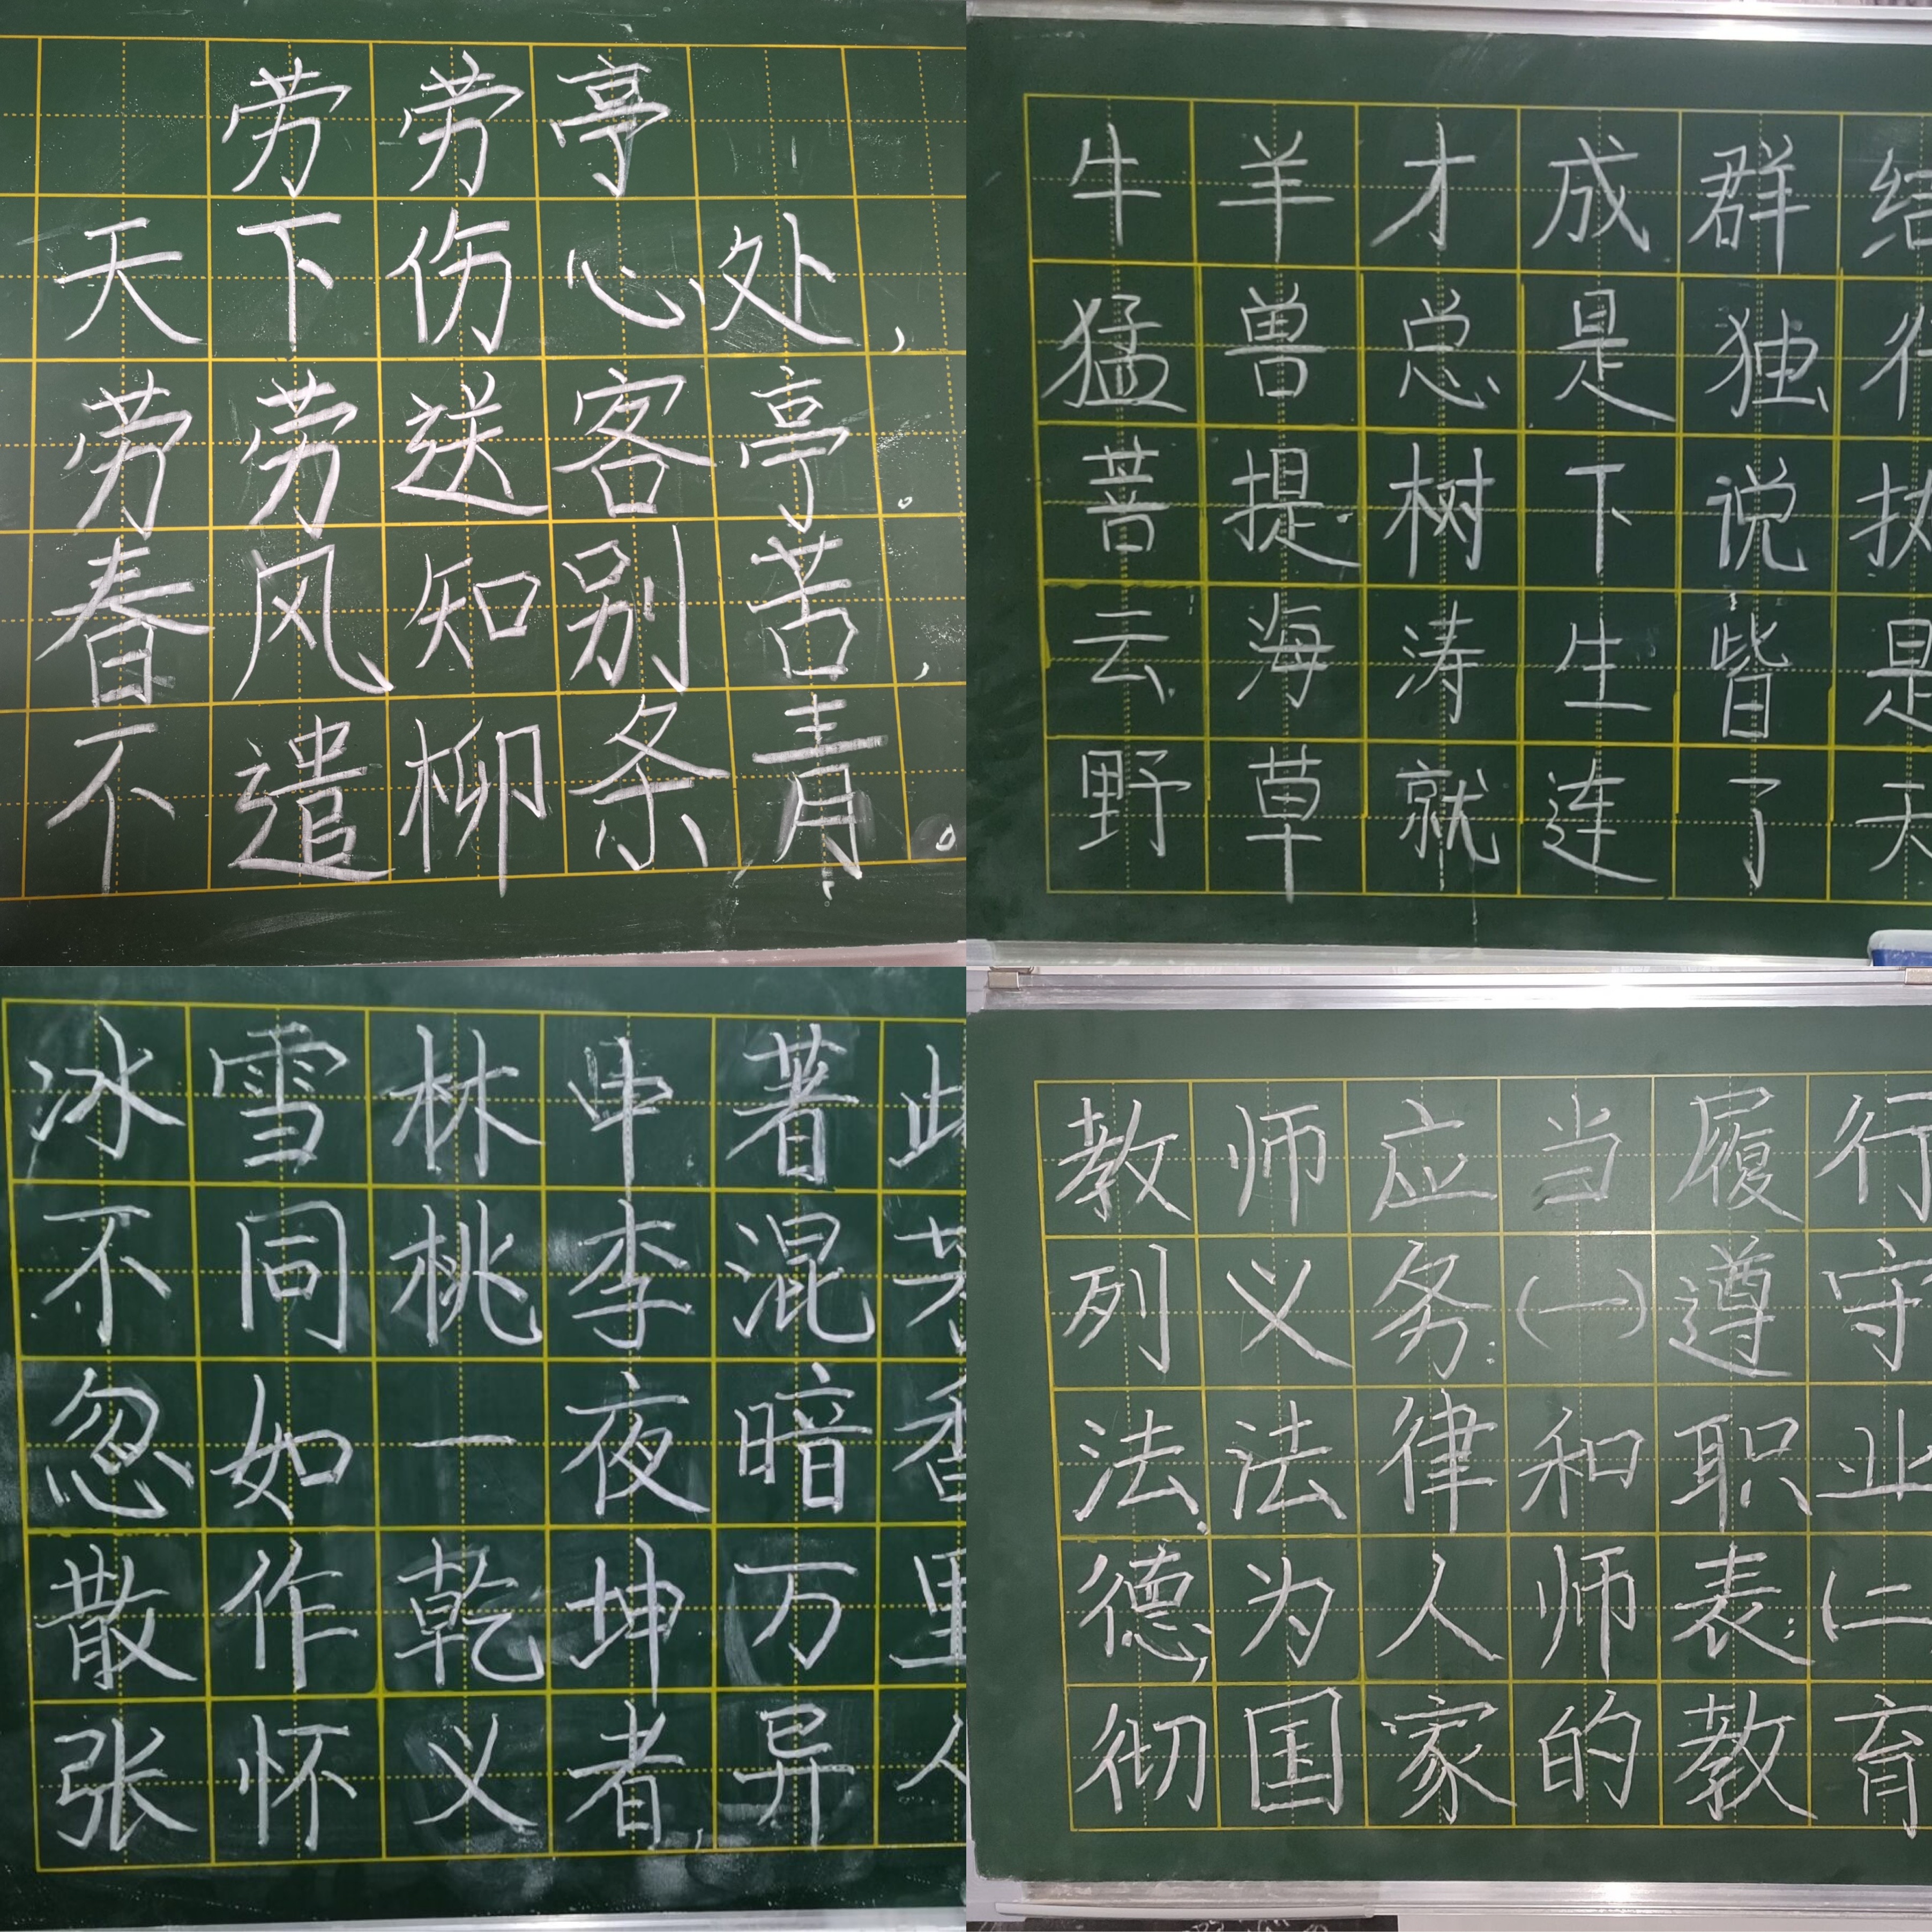 劳劳亭
天下伤心处,
劳劳送客亭。
春风知别苦,
不遣柳条青。
牛羊才成群结
猛兽总是独行
菩提树下说
云海涛生皆是
野草就连了天
冰雪林中著此
不同桃李混芳
忽如一夜暗香
散作乾坤万里
张怀义者,异人
教师应当履行
列义务:(一)遵守
法、法律和职业
德,为人师表;(二
彻国家的教育